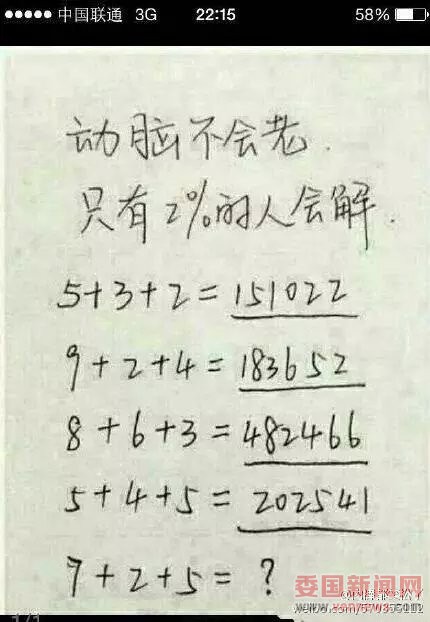 中国联通 3G 22:15 58%
动脑不会老.
只有2%的人会解.
5+3+2=151022
9+2+4=183652
8+6+3=482466
5+4+5=202541
7+2+5=?
娄国新闻网
1/1